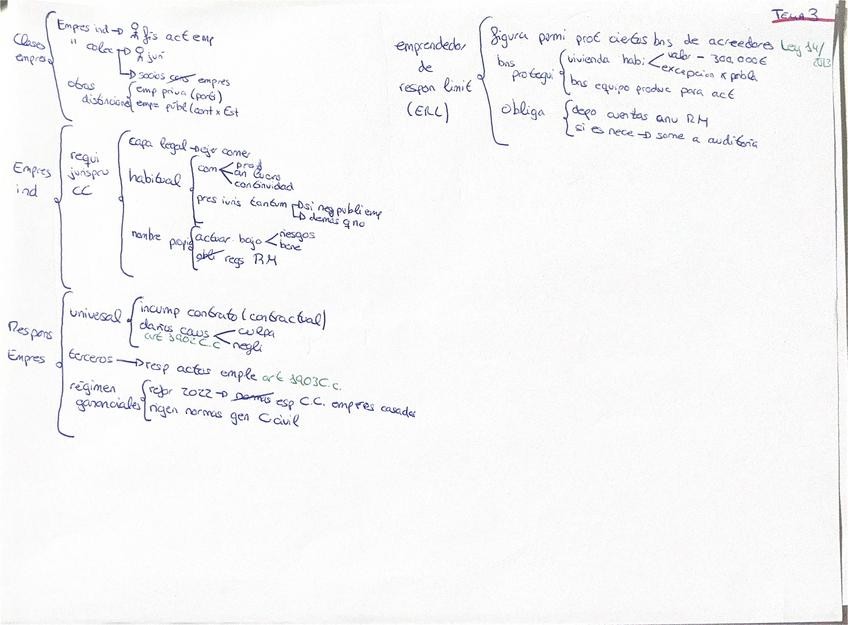 TEMA 3
Clases
empres
Empres ind → fis act emp
" colec → jurí
→ socios cons empres
otras
distincione
emp priva (parti)
emp públ (cont x Est
Empres
ind
requi
jurispru
CC
capa legal → ejer comer
habitual
com
prof
an lucro
continuidad
pres iuris tantum → si neg publi emp
→ demás q no
nombre propio
actuar bajo
riesgos
bene
obli regs RM
Respons
Empres
universal
incump contrato (contractual)
daños caus
art 1902 C.C
culpa
negli
terceros → resp actos emple art 1903 C.c.
régimen
gananciales
refor 2022 → normas esp C.C. empres casados
rigen normas gen Civil
emprendedor
de
respon limit
(ERL)
figura permi prot ciertos bns de acreedores Ley 14/
2013
bns
protegui
vivienda habi
valor - 300.000€
excepcion x pobla
bns equipo produc para act
obliga
depo cuentas anu RM
si es nece → some a auditoría